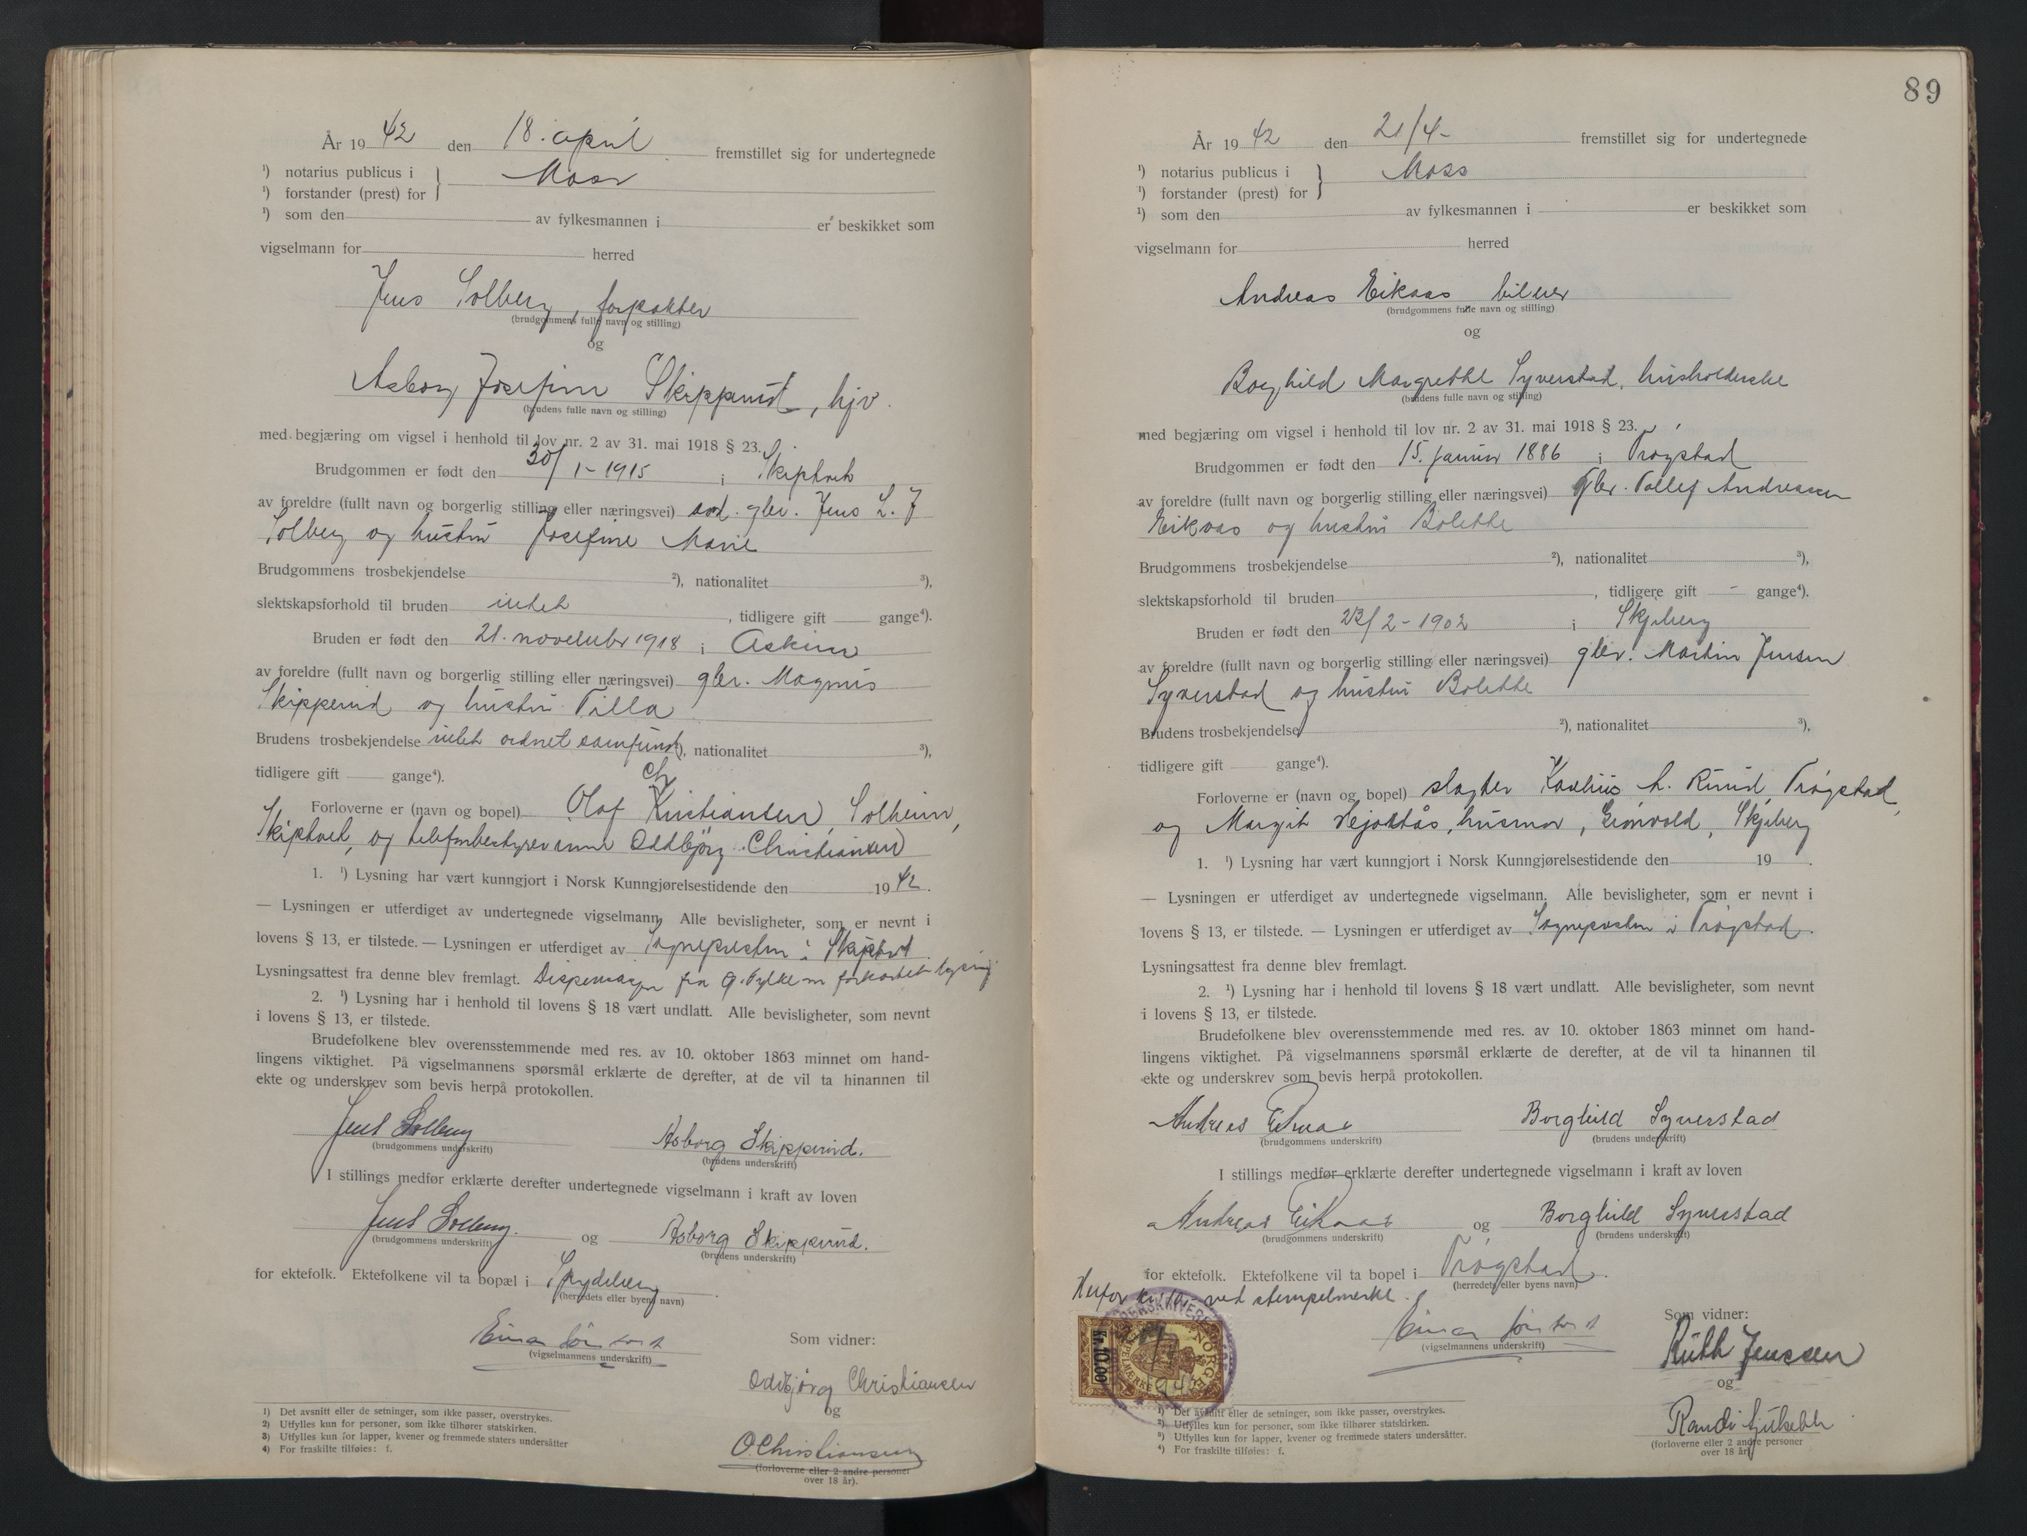 År 19 42 den 18. april fremstillet sig for undertegnede
¹) notarius publicus i } Moss
¹) forstander (prest) for
¹) som den av fylkesmannen i er beskikket som
vigselmann for herred
Jens Solberg, forpakter
(brudgommens fulle navn og stilling)
og
Asborg Josefine Skipperud, hjv.
(brudens fulle navn og stilling)
med begjæring om vigsel i henhold til lov nr. 2 av 31. mai 1918 § 23.
Brudgommen er født den 30/1-1915 i Skiptvet
av foreldre (fullt navn og borgerlig stilling eller næringsvei) gbr. Jens L. J
Solberg og hustru Josefine Marie
Brudgommens trosbekjendelse ²), nationalitet ³),
slektskapsforhold til bruden intet, tidligere gift gange⁴).
Bruden er født den 21. november 1918 i Askim
av foreldre (fullt navn og borgerlig stilling eller næringsvei) gbr. Magnus
Skipperud og hustru Tilla
Brudens trosbekjendelse intet ordnet samfund ²), nationalitet ³),
tidligere gift gange⁴).
Forloverne er (navn og bopel) Olaf Kristiansen, Solheim,
Ch
Skiptvet, og telefonbestyrerinne Oddbjørg Christiansen
1. ¹) Lysning har vært kunngjort i Norsk Kunngjørelsestidende den 19 42.
— Lysningen er utferdiget av undertegnede vigselmann. Alle bevisligheter, som er nevnt i
lovens § 13, er tilstede. — Lysningen er utferdiget av Sognepresten i Skiptvet
Lysningsattest fra denne blev fremlagt. Dispensasjon fra Ø. Fylke m forkortet lysning
2. ¹) Lysning har i henhold til lovens § 18 vært undlatt. Alle bevisligheter, som nevnt
i lovens § 13, er tilstede.
Brudefolkene blev overensstemmende med res. av 10. oktober 1863 minnet om hand-
lingens viktighet. På vigselmannens spørsmål erklærte de derefter, at de vil ta hinannen til
ekte og underskrev som bevis herpå protokollen.
Jens Solberg Asborg Skipperud.
(brudgommens underskrift) (brudens underskrift)
I stillings medfør erklærte derefter undertegnede vigselmann i kraft av loven
Jens Solberg. og Asborg Skipperud.
(brudgommens underskrift) (brudens underskrift)
for ektefolk. Ektefolkene vil ta bopæl i Spydeberg
(herredets eller byens navn)
Som vidner:
Einar
(vigselmannens underskrift)
Oddbjørg Christiansen
og
O Christiansen
(forloverne eller 2 andre personer
over 18 år).
1) Det avsnitt eller de setninger, som ikke passer, overstrykes.
2) Utfylles kun for personer, som ikke tilhører statskirken.
3) Utfylles kun for lapper, kvener og fremmede staters undersåtter
4) For fraskilte tilføies: f.
89
År 19 42 den 21/4- fremstillet sig for undertegnede
¹) notarius publicus i } Moss
¹) forstander (prest) for
¹) som den av fylkesmannen i er beskikket som
vigselmann for herred
Andreas Eikaas bileier
(brudgommens fulle navn og stilling)
og
Borghild Margrethe Syverstad, husholderske
(brudens fulle navn og stilling)
med begjæring om vigsel i henhold til lov nr. 2 av 31. mai 1918 § 23.
Brudgommen er født den 15. januar 1886 i Trøgstad
av foreldre (fullt navn og borgerlig stilling eller næringsvei) gbr. Tollef Andreassen
Eikaas og hustru Bolette
Brudgommens trosbekjendelse ²), nationalitet ³),
slektskapsforhold til bruden, tidligere gift - gange⁴).
Bruden er født den 23/2-1902 i Skjeberg
av foreldre (fullt navn og borgerlig stilling eller næringsvei) gbr. Martin Jensen
Syverstad og hustru Bolette
Brudens trosbekjendelse ²), nationalitet ³),
tidligere gift gange⁴).
Forloverne er (navn og bopel) slagter A. Ruud, Trøgstad,
og Margit husmor, Skjeberg
1. ¹) Lysning har vært kunngjort i Norsk Kunngjørelsestidende den 19 .
— Lysningen er utferdiget av undertegnede vigselmann. Alle bevisligheter, som er nevnt i
lovens § 13, er tilstede. — Lysningen er utferdiget av Sognepresten i Trøgstad.
Lysningsattest fra denne blev fremlagt.
2. ¹) Lysning har i henhold til lovens § 18 vært undlatt. Alle bevisligheter, som nevnt
i lovens § 13, er tilstede.
Brudefolkene blev overensstemmende med res. av 10. oktober 1863 minnet om hand-
lingens viktighet. På vigselmannens spørsmål erklærte de derefter, at de vil ta hinannen til
ekte og underskrev som bevis herpå protokollen.
Andreas Eikaas Borghild Syverstad
(brudgommens underskrift) (brudens underskrift)
I stillings medfør erklærte derefter undertegnede vigselmann i kraft av loven
Andreas Eikaas og Borghild Syverstad
(brudgommens underskrift) (brudens underskrift)
for ektefolk. Ektefolkene vil ta bopel i Trøgstad.
(herredets eller byens navn)
Herfor kr. 10.- ved stempelmerke.
Som vidner:
Einar
(vigselmannens underskrift)
Ruth Jenssen
og
Randi
(forloverne eller 2 andre personer
over 18 år).
NORGE
Kr. 10.00
STEMPELMERKE
¹) Det avsnitt eller de setninger, som ikke passer, overstrykes.
²) Utfylles kun for personer, som ikke tilhører statskirken.
³) Utfylles kun for lapper, kvener og fremmede staters undersåtter.
⁴) For fraskilte tilføies: f.